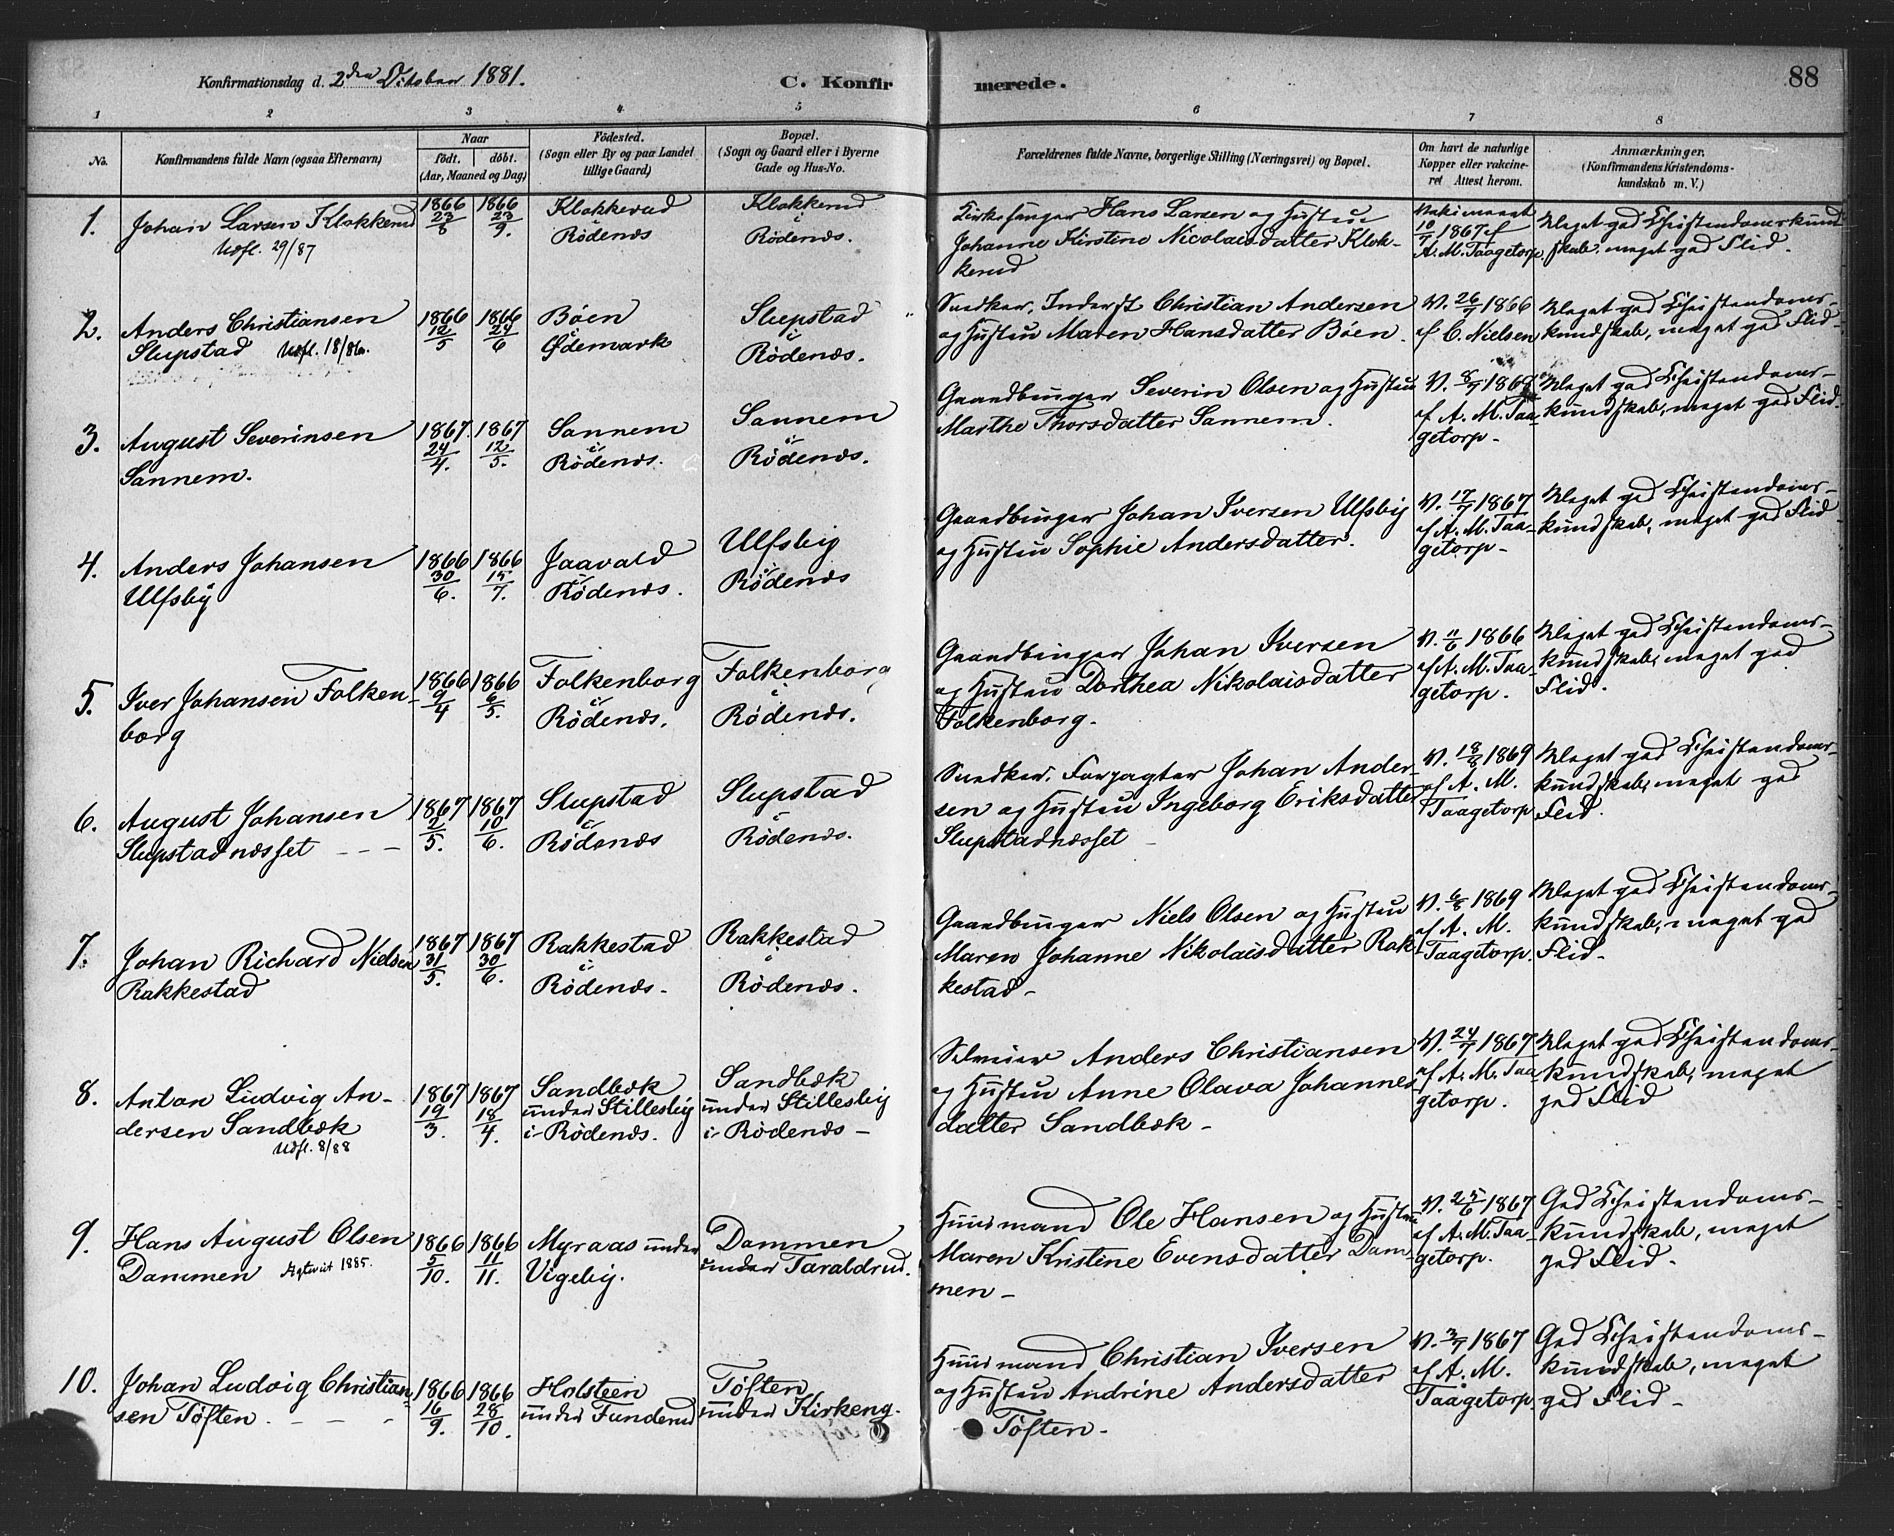 Konfirmationsdag d. 2den Oktober 1881.
C. Konfirmerede.
88
1 2 3 4 5 6 7 8
No.
Konfirmandens fulde Navn (ogsaa Efternavn)
Naar
født. døbt.
(Aar, Maaned og Dag)
Fødested.
(Sogn eller By og paa Landet
tillige Gaard)
Bopæl.
(Sogn og Gaard eller i Byerne
Gade og Hus-No.
Forældrenes fulde Navne, borgerlige Stilling (Næringsvei) og Bopæl.
Om havt de naturlige
Kopper eller vakcine-
ret Attest herom.
Anmærkninger,
(Konfirmandens Kristendoms-
kundskab m. V.)
1.
Johan Larsen Klokkerud
Udfl. 29/87
1866 23/8
1866 23/9.
Klokkerud
i
Rødenæs
Klokkerud
i
Rødenæs.
Kirkesanger Hans Larsen og Hustru
Johanne Kirstine Nicolaisdatter Klok-
kerud
10/7 1867 af
A. M. Taagetorp
Meget god Christendomskund
skab. meget god Flid.
2.
Anders Christiansen
Slupstad Udfl. 18/86.
1866 12/5
1866 24/6
Bøen
i
Ødemark
Slupstad
i
Rødenæs.
Snedker, Inderst Christian Andersen
og Hustru Maren Hansdatter Bøen.
V. 26/7 1866
af C. Nielsen
Meget god Christendoms-
kundskab, meget god Flid-
3.
August Severinsen
Sannem.
1867. 24/4.
1867 12/5.
Sannem
i
Rødenæs.
Sannem
i
Rødenæs.
Gaardbruger Severin Olsen og Hustru
Marthe Thorsdatter Sannem.
V. 8/7 1868
af A. M. Taa-
getorp-
Meget god Christendoms-
kundskab, meget god Flid.
4.
Anders Johansen
Ulfsby
1866 30/6.
1866 15/7.
Jaavald
i
Rødenæs.
Ulfsby
i
Rødenæs
Gaardbruger Johan Iversen Ulfsby
og Hustru Sophie Andersdatter.
V. 17/7 1867
af A. M. Taa-
getorp-
Meget god Christendoms-
kundskab, meget god Flid
5.
Iver Johansen Folken-
borg
1866 9/4
1866 6/5.
Folkenborg
i
Rødenæs.
Folkenborg
i
Rødenæs.
Gaardbruger Johan Iversen
og Hustru Dorthea Nikolaisdatter
Folkenborg.
V. 11/6 1866
af A. M. Taa-
getorp.
Meget god Christendoms-
kundskab, meget god
Flid.
6.
August Johansen
Slupstadnæsset - - -
1867 2/5.
1867 10/6.
Slupstad
i
Rødenæs
Slupstad
i
Rødenæs.
Snedker, Forpagter Johan Ander-
sen og Hustru Ingeborg Eriksdatter
Slupstadnæsset -
V. 18/8 1869
af A. M.
Taagetorp
Meget god Christendoms-
kundskab, meget god
Flid.
7.
Johan Richard Nielsen
Rakkestad
1867 31/5.
1867 30/6.
Rakkestad
i
Rødenæs-
Rakkestad
i
Rødenæs.
Gaardbruger Niels Olsen og Hustru
Maren Johanne Nikolaisdatter Rak-
kestad-
V. 6/8 1869
af A. M.
Taagetorp.
Meget god Christendoms-
kundskab, meget god
Flid-
8.
Anton Ludvig An-
dersen Sandbæk
Udfl. 8/88
1867 19/3.
1867 18/4.
Sandbæk
under Stillesby
i Rødenæs.
Sandbæk
under Stillesby
i Rødenæs-
Selveier Anders Christiansen
og Hustru Anne Olava Johannes
datter Sandbæk-
V. 24/7 1867
af A. M. Taa-
getorp.
Meget god Christendoms-
kundskab, meget
god Flid
9.
Hans August Olsen
Dammen 1885.
1866 5/10.
1866 11/11.
Myraas under
Vigeby.
Dammen
under Taraldrud.
Huusmand Ole Hansen og Hustru
Maren Kristine Evensdatter Dam-
men-
V. 25/6 1867
af A. M. Taa-
getorp.
God Christendoms-
kundskab, meget
god Flid.
10.
Johan Ludvig Christian-
sen Tøften. - - -
1866 16/9.
1866 28/10.
Holsteen
under Funderud
Tøften
under Kirkeng.
Huusmand Christian Iversen
og Hustru Andrine Andersdatter
Tøften-
V. 3/7 1867
af A. M.
Taagetorp
God Christendoms-
kundskab, meget
god Flid-